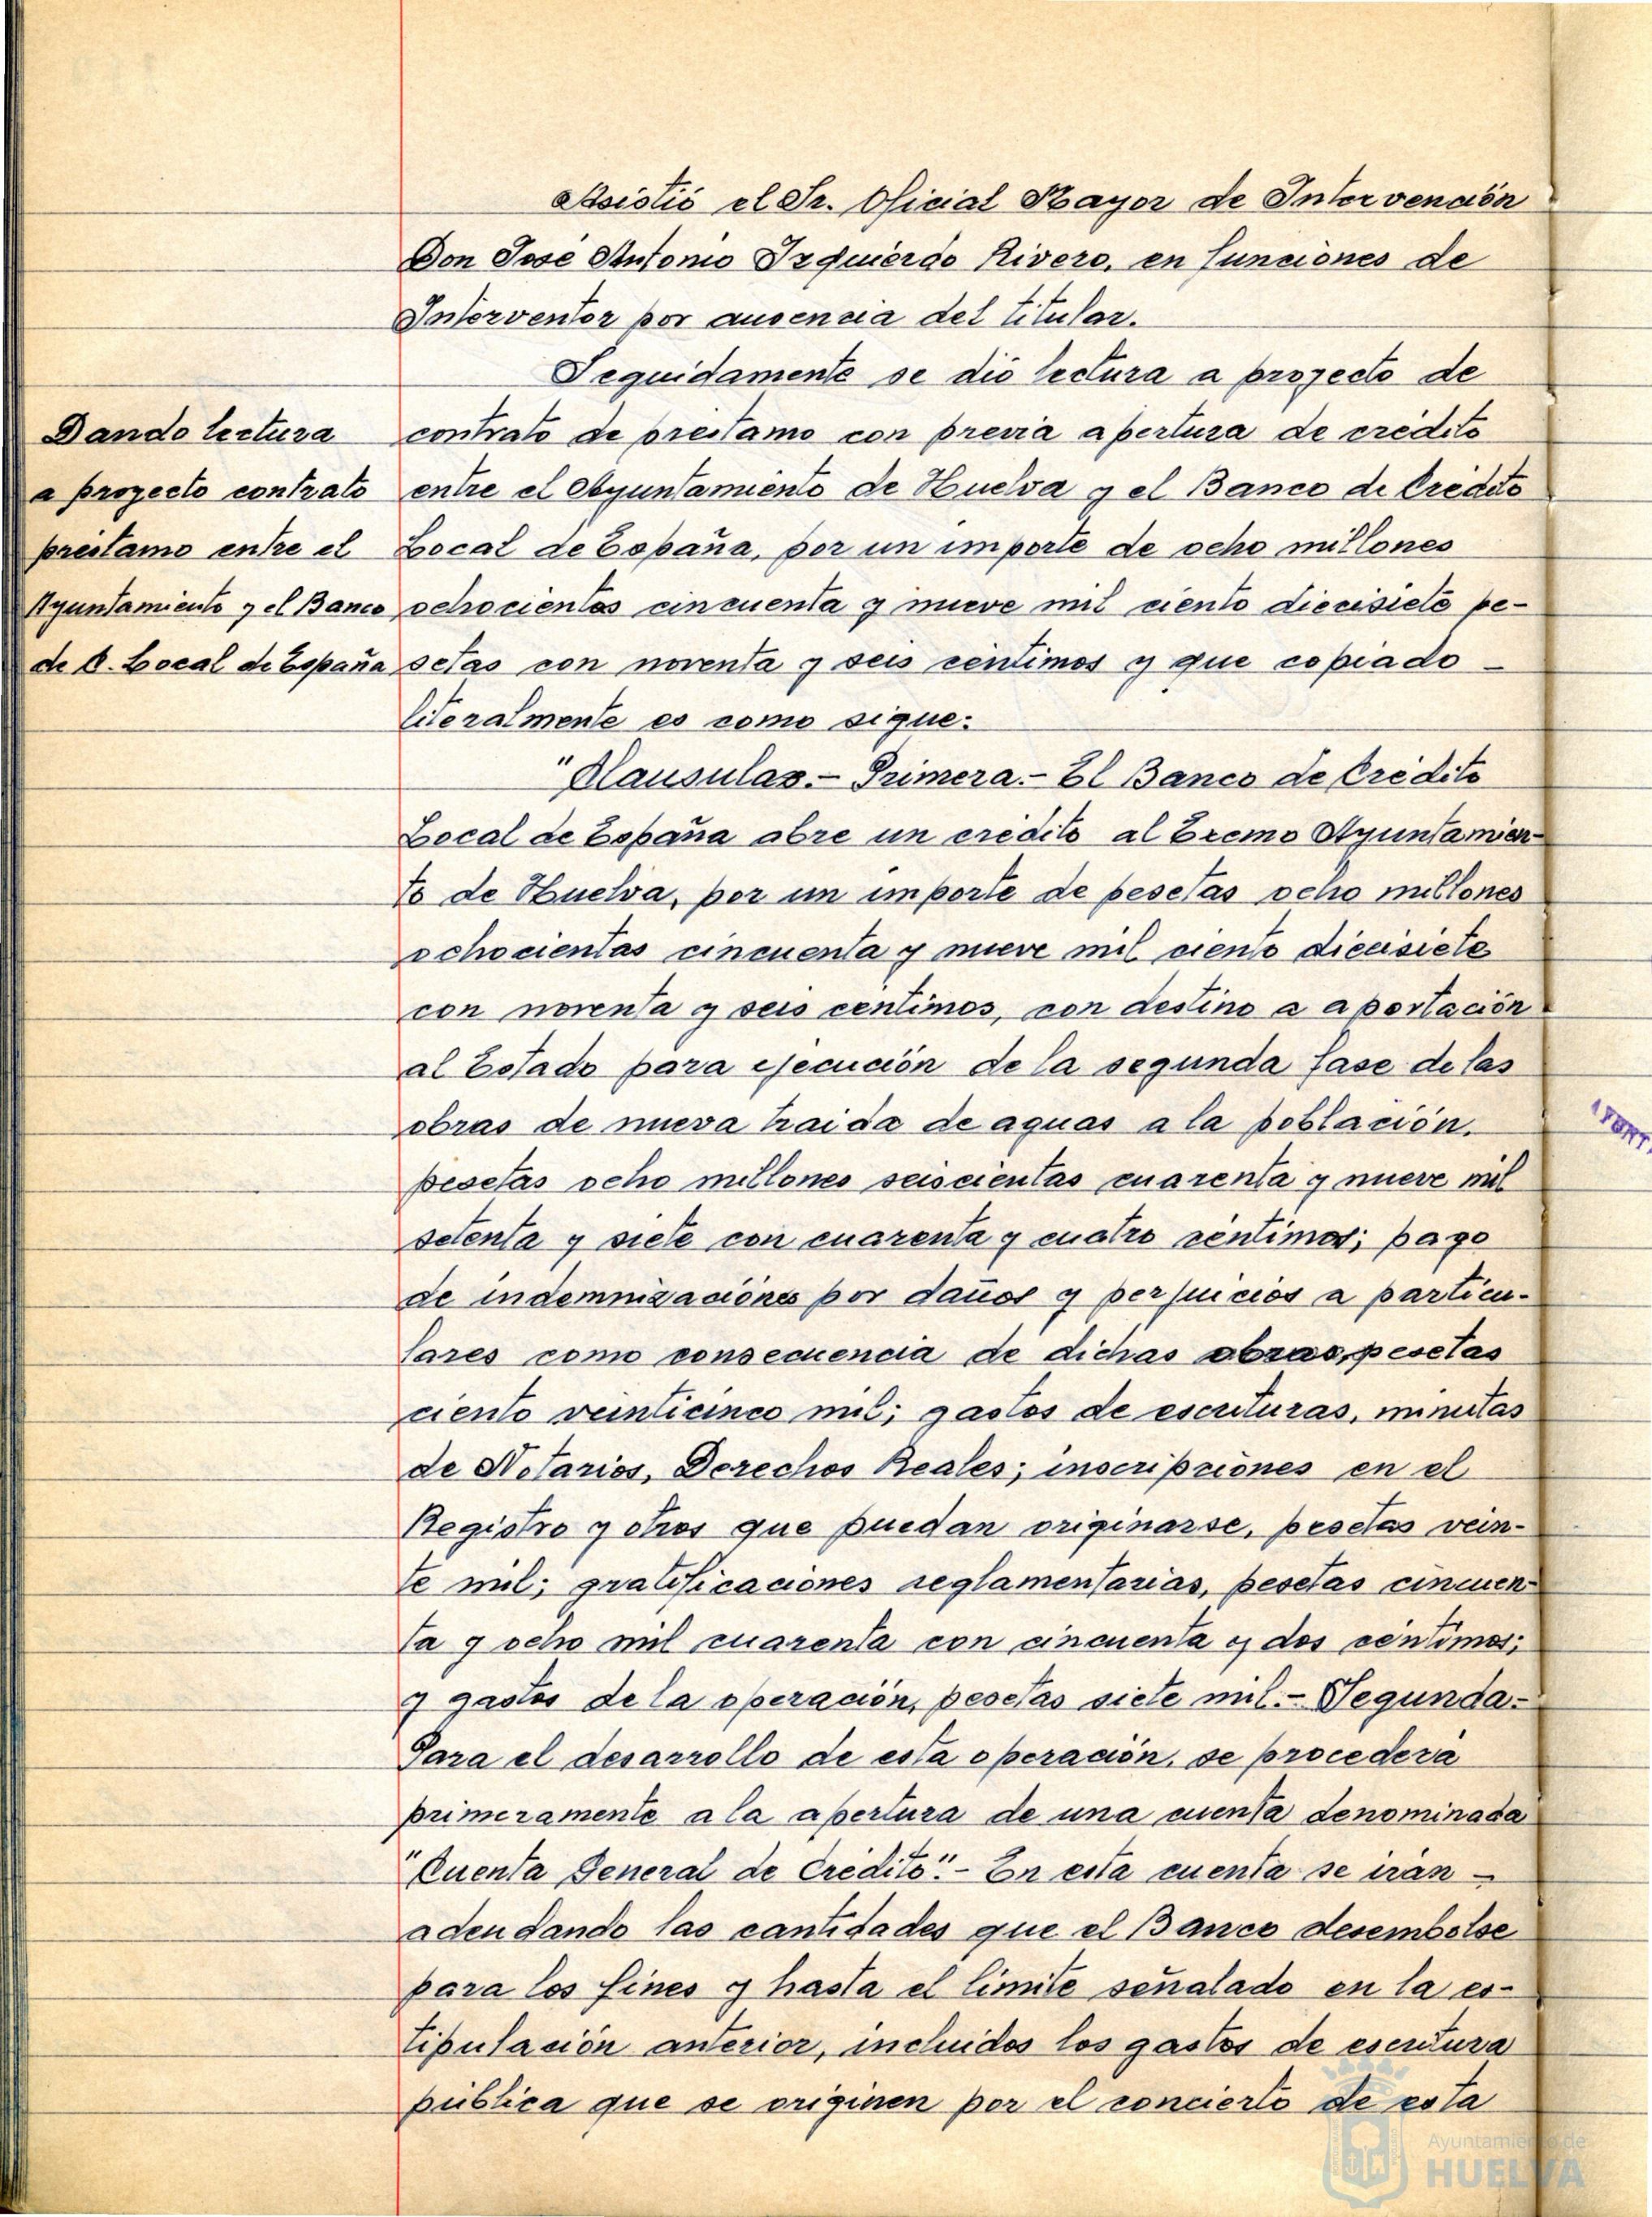 Asistió el Sr. Oficial Mayor de Intervención
Don José Antonio Izquierdo Rivero, en funciones de
Interventor por ausencia del titular.
Seguidamente se dió lectura a proyecto de
Dando lectura
a proyecto contrato
prestamo entre el
Ayuntamiento y el Banco
de C. Local de España
contrato de prestamo con previa apertura de crédito
entre el Ayuntamiento de Huelva y el Banco de Crédito
Local de España, por un importe de ocho millones
ochocientas cincuenta y nueve mil ciento diecisiete pe-
setas con noventa y seis centimos y que copiado -
literalmente es como sigue:
"Clausulas.- Primera.- El Banco de Crédito
Local de España abre un crédito al Excmo Ayuntamien-
to de Huelva, por un importe de pesetas ocho millones
ochocientas cincuenta y nueve mil ciento diecisiete
con noventa y seis centimos, con destino a aportación
al Estado para ejecución de la segunda fase de las
obras de nueva traida de aguas a la población,
pesetas ocho millones seiscientas cuarenta y nueve mil
setenta y siete con cuarenta y cuatro céntimos; pago
de indemnizaciónes por daños y perjuicios a particu-
lares como consecuencia de dichas obras, pesetas
ciento veinticinco mil; gastos de escrituras, minutas
de Notarios, Derechos Reales; inscripciónes en el
Registro y otros que puedan originarse, pesetas vein-
te mil; gratificaciones reglamentarias, pesetas cincuen-
ta y ocho mil cuarenta con cincuenta y dos céntimos;
y gastos de la operación, pesetas siete mil.- Segunda-
Para el desarrollo de esta operación, se procederá
primeramente a la apertura de una cuenta denominada
"Cuenta General de Crédito".- En esta cuenta se irán -
adeudando las cantidades que el Banco desembolse
para los fines y hasta el limite señalado en la es-
tipulación anterior, incluidos los gastos de escritura
pública que se originen por el concierto de esta
Ayuntamiento de
HUELVA